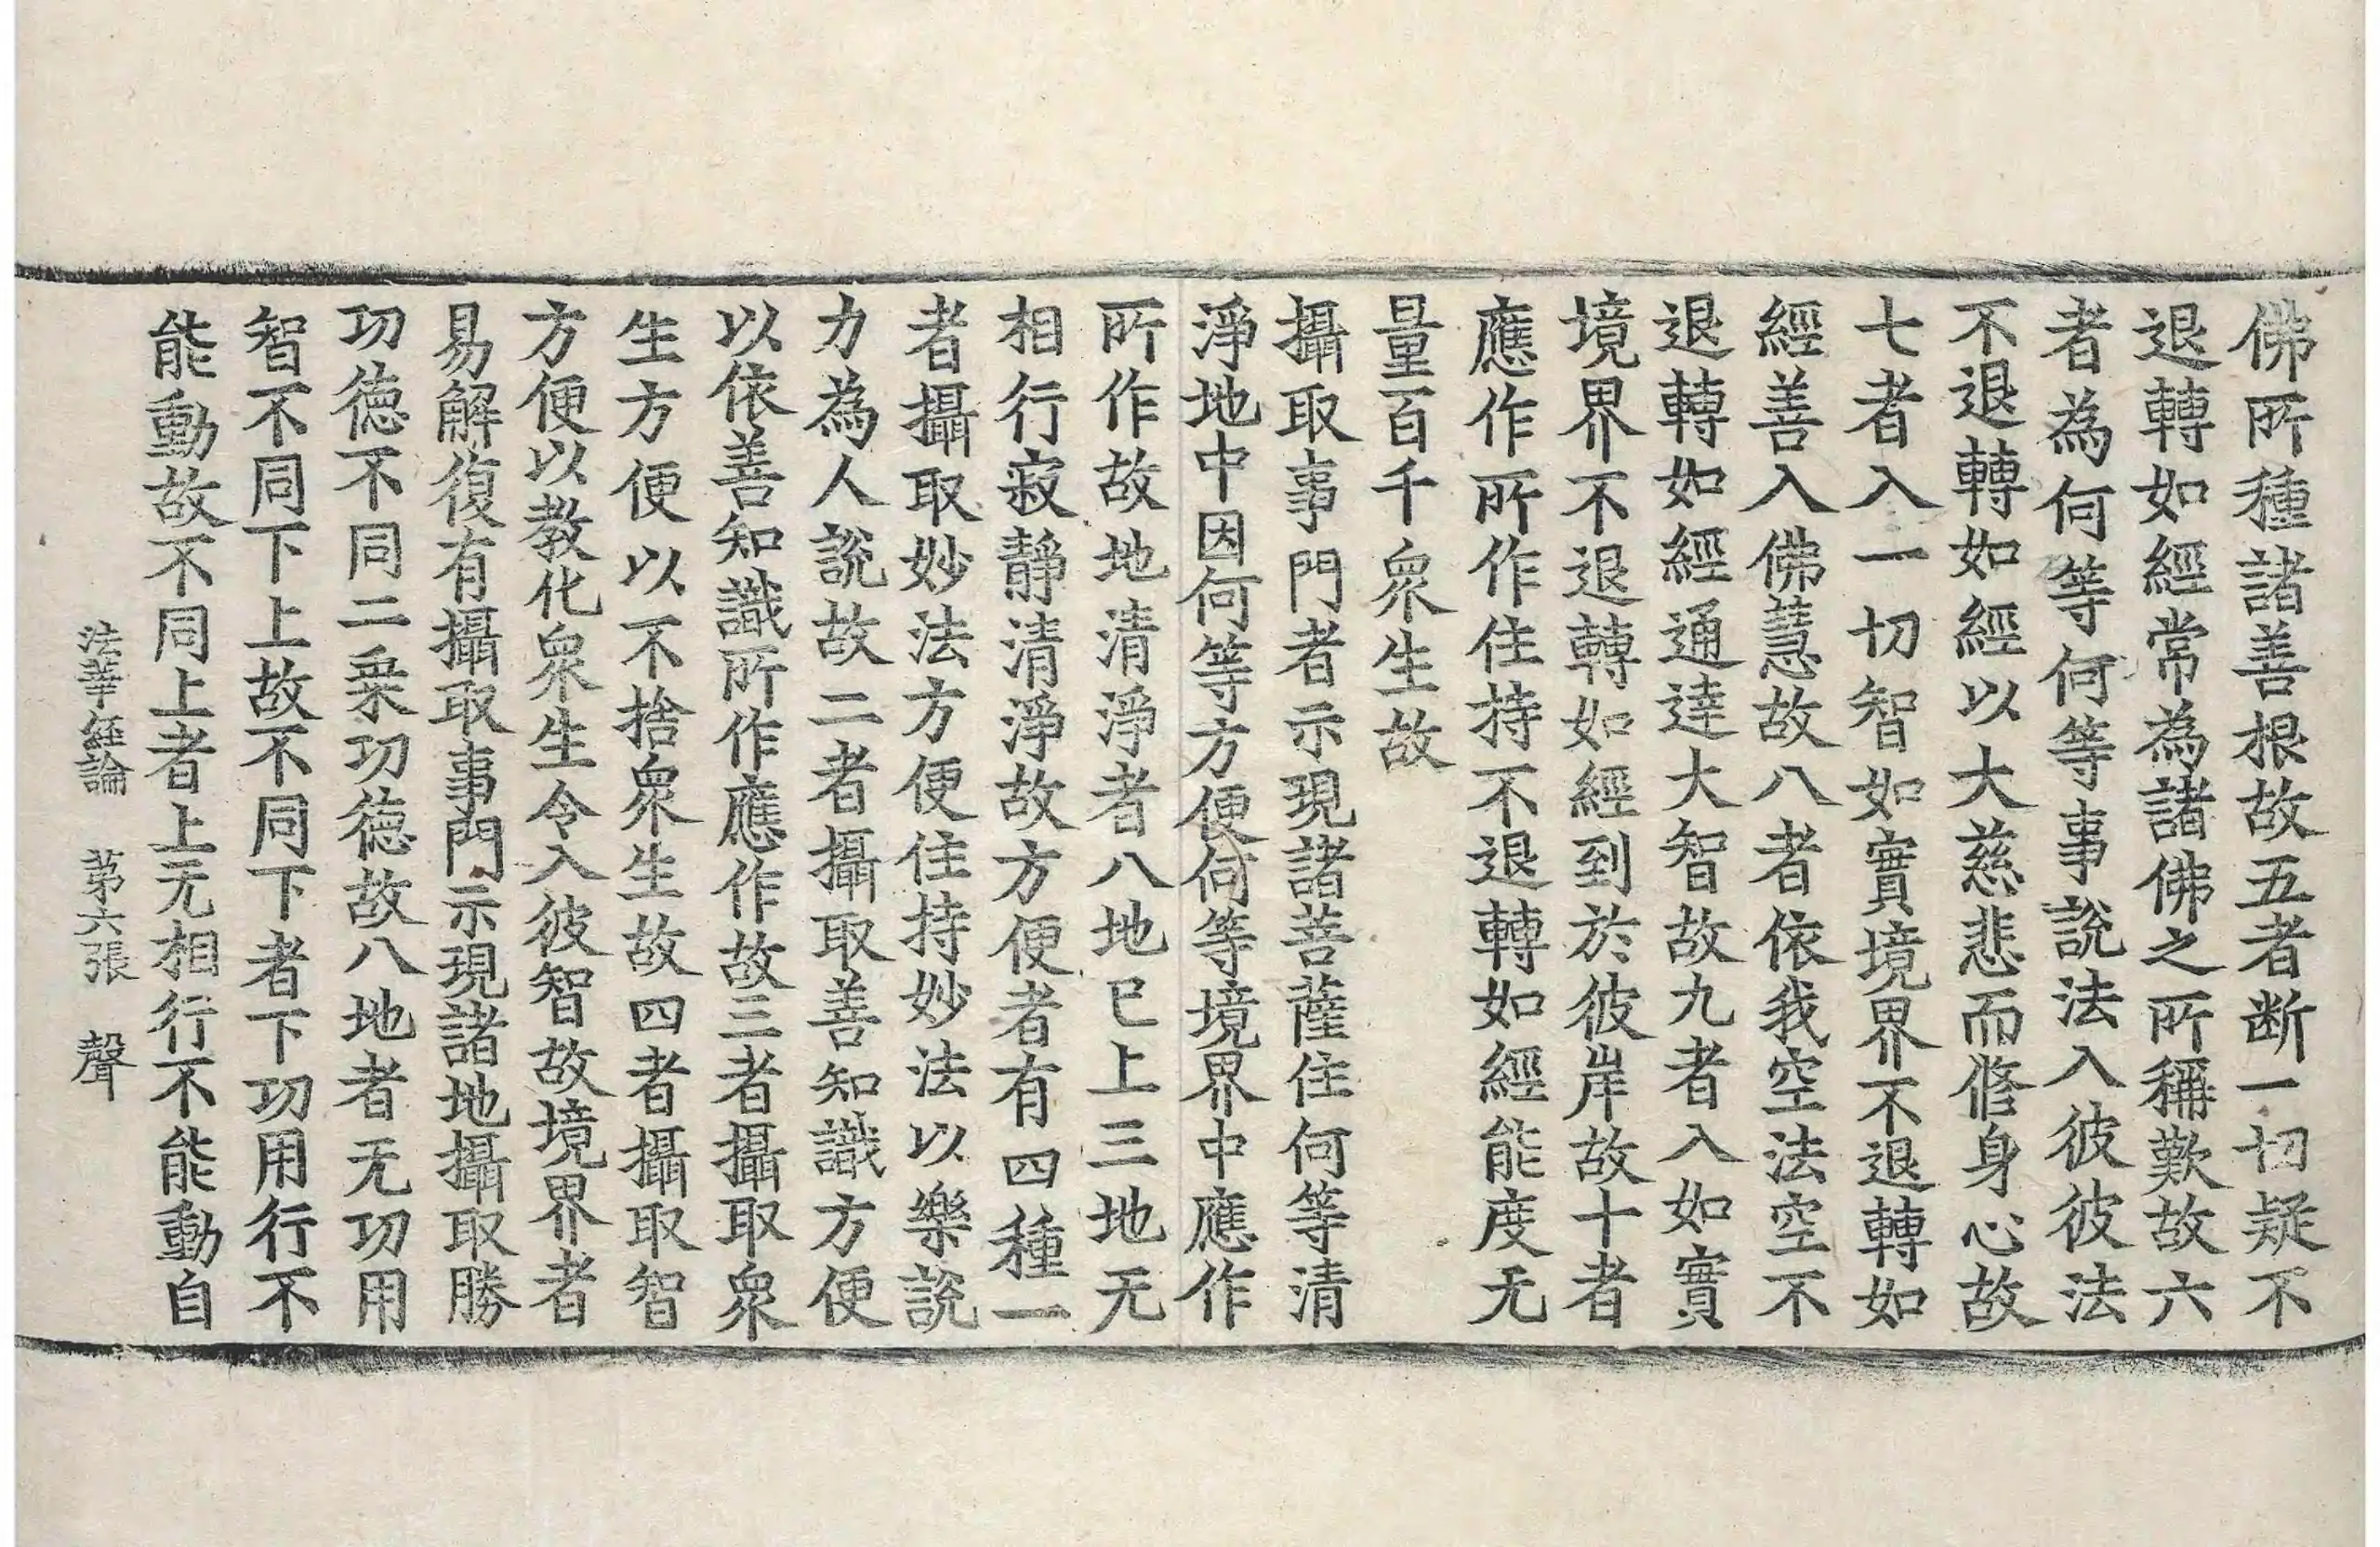 佛所種諸善根故五者断一切疑不
退轉如經常為諸佛之所稱歎故六
者為何等何等事說法入彼彼法
不退轉如經以大慈悲而脩身心故
七者入一切智如實境界不退轉如
經善入佛慧故八者依我空法空不
退轉如經通達大智故九者入如實
境界不退轉如經到於彼岸故十者
應作所作住持不退轉如經能度无
量百千衆生故
攝取事門者示現諸菩薩住何等清
淨地中因何等方便何等境界中應作
所作故地清淨者八地已上三地无
相行寂靜清淨故方便者有四種一
者攝取妙法方便住持妙法以樂說
力為人說故二者攝取善知識方便
以依善知識所作應作故三者攝取衆
生方便以不捨衆生故四者攝取智
方便以教化衆生令入彼智故境界者
易解復有攝取事門示現諸地攝取勝
功德不同二乗功德故八地者无功用
智不同下上故不同下者下功用行不
能動故不同上者上无相行不能動自
法華経論 苐六張 聲